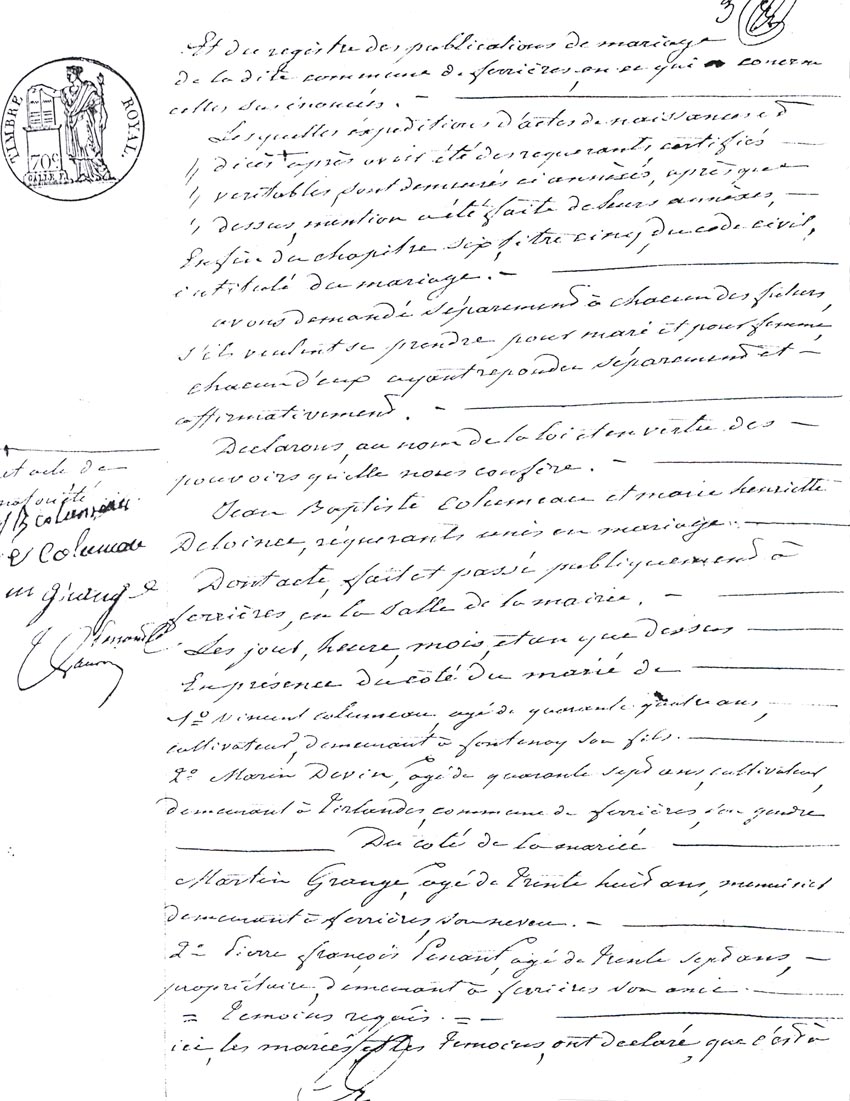 3
TIMBRE ROYAL.
70c
Et du registre des publications de mariage
de la dite commune de ferrières, en ce qui concerne
celles susénoncés. —
Lesquelles expéditions d'actes de naissances et
décès après avoir été des requerants certifiés —
veritables, sont demeurés ci annèxés, après que
dessus, mention a été faite de leurs annèxes, —
Enfin du chapitre six, titre cinq, du code civil,
intitulé du mariage. —
avons demandé séparement à chacun des futurs,
s'ils veulent se prendre pour mari et pour femme
chacun d'eux ayant repondu séparement et —
affirmativement. —
Declarons, au nom de la loi et en vertu des —
pouvoirs qu'elle nous confère. —
Jean Baptiste Columeau et marie henriette
Deloince, réquerants unis en mariage. —
Dont acte, fait et passé publiquement à
ferrières, en la salle de la mairie. —
Les jour, heure, mois, et an que dessus
En présence du côté du marié de
1o Vincent Columeau, agé de quarante quatre ans,
cultivateur, demeurant à fontenay son fils. —
2o Marin Devin, agé de quarante sept ans, cultivateur,
demeurant à Virlandes, commune de ferrières, son gendre
Du coté de la mariée
Martin Grange, agé de trente huit ans, menuisier
demeurant à ferrières, son neveu. —
2o Pierre françois Penant, agé de trente sept ans, —
propriétaire, demeurant à ferrières son ami. —
= Temoins requis. = —
ici, les mariés et les temoins, ont declaré, que c'est à
et acte de
J B columeau
Columeau
grange